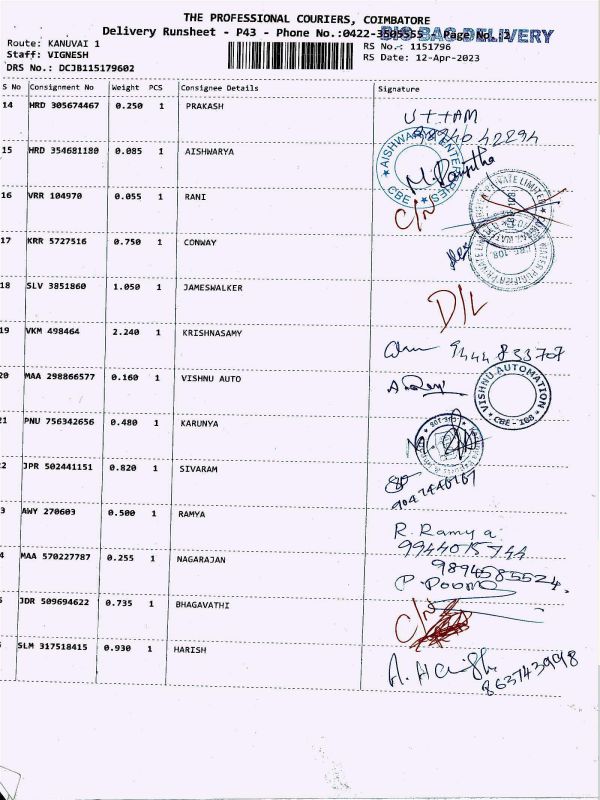 THE PROFESSIONAL COURIERS, COIMBATORE
Delivery Runsheet - P43 - Phone No.:0422-3505555 - Page No. 2
BIG BAG DELIVERY
Route: KANUVAI 1
RS No.: 1151796
Staff: VIGNESH
RS Date: 12-Apr-2023
DRS No.: DCJB115179602
S No Consignment No Weight PCS Consignee Details Signature
14 HRD 305674467 0.250 1 PRAKASH UTTAM
9894042294
15 HRD 354681180 0.085 1 AISHWARYA
AISHWARYA ENTERPRISES
CBE
16 VRR 104970 0.055 1 RANI C/N
17 KRR 5727516 0.750 1 CONWAY
18 SLV 3851860 1.050 1 JAMESWALKER D/L
19 VKM 498464 2.240 1 KRISHNASAMY 9444833707
20 MAA 298866577 0.160 1 VISHNU AUTO
VISHNU AUTOMATION
CBE - 108
21 PNU 756342656 0.480 1 KARUNYA
2 JPR 502441151 0.820 1 SIVARAM
3 AWY 270603 0.500 1 RAMYA R. Ramya
9944015744
4 MAA 570227787 0.255 1 NAGARAJAN 9894585524
5 JDR 509694622 0.735 1 BHAGAVATHI C/N
SLM 317518415 0.930 1 HARISH
8637439998